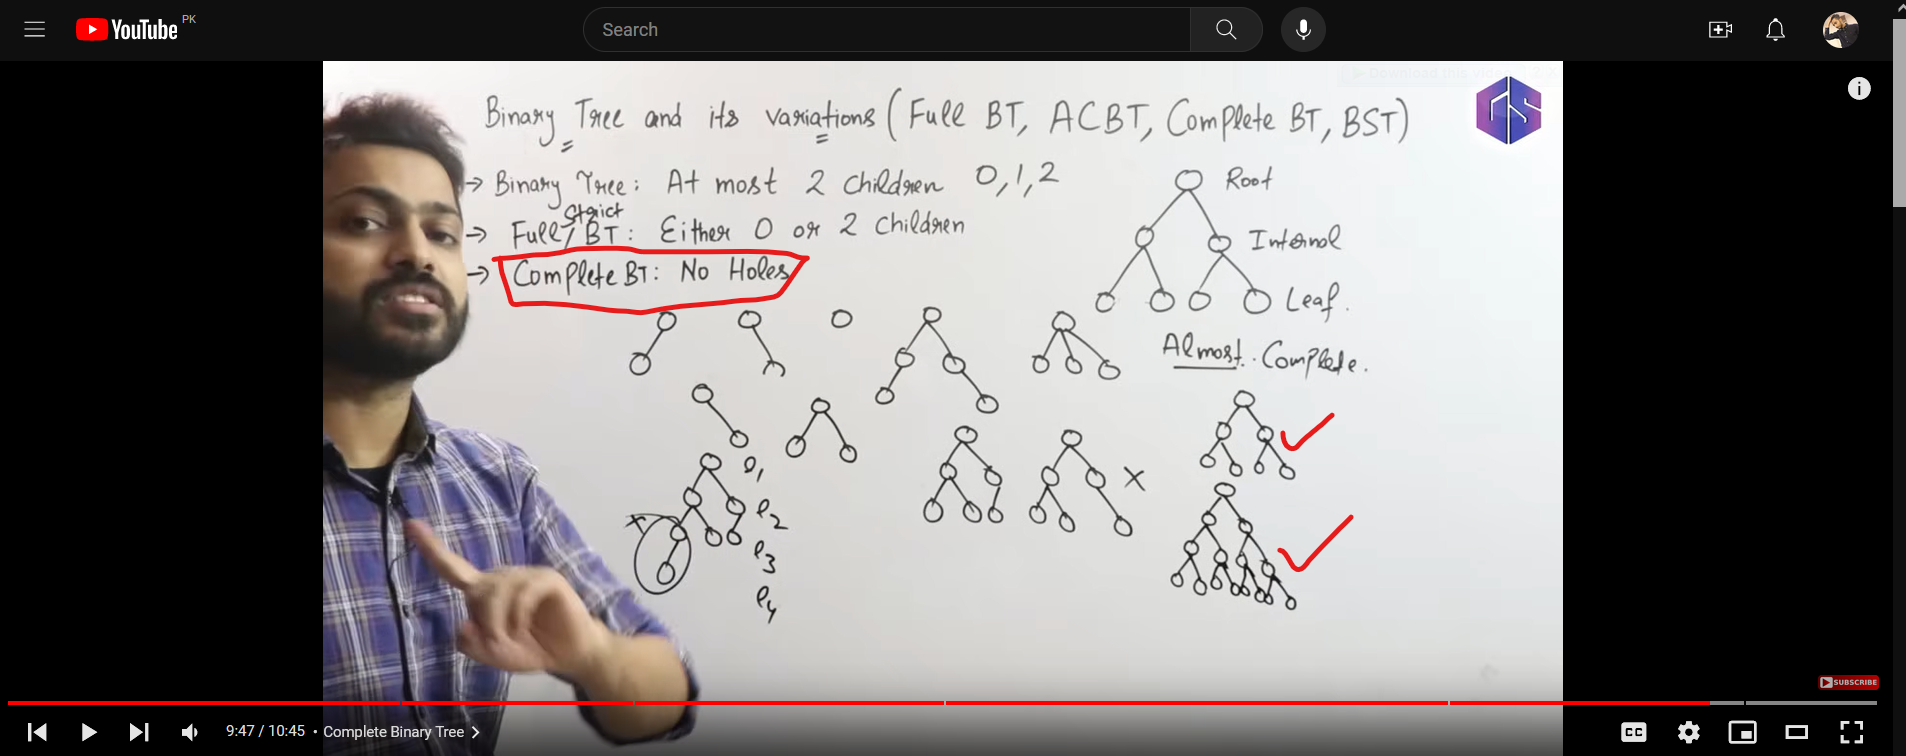 YouTube PK
Search
Download this video
Binary Tree and its variations (Full BT, ACBT, Complete BT, BST)
→ Binary Tree: At most 2 Children 0,1,2
Strict
→ Full/BT: Either 0 or 2 Children
→ Complete BT: No Holes
Root
Internal
Leaf.
Almost. Complete.
l1
l2
l3
l4
x
x
SUBSCRIBE
9:47 / 10:45 • Complete Binary Tree >
CC